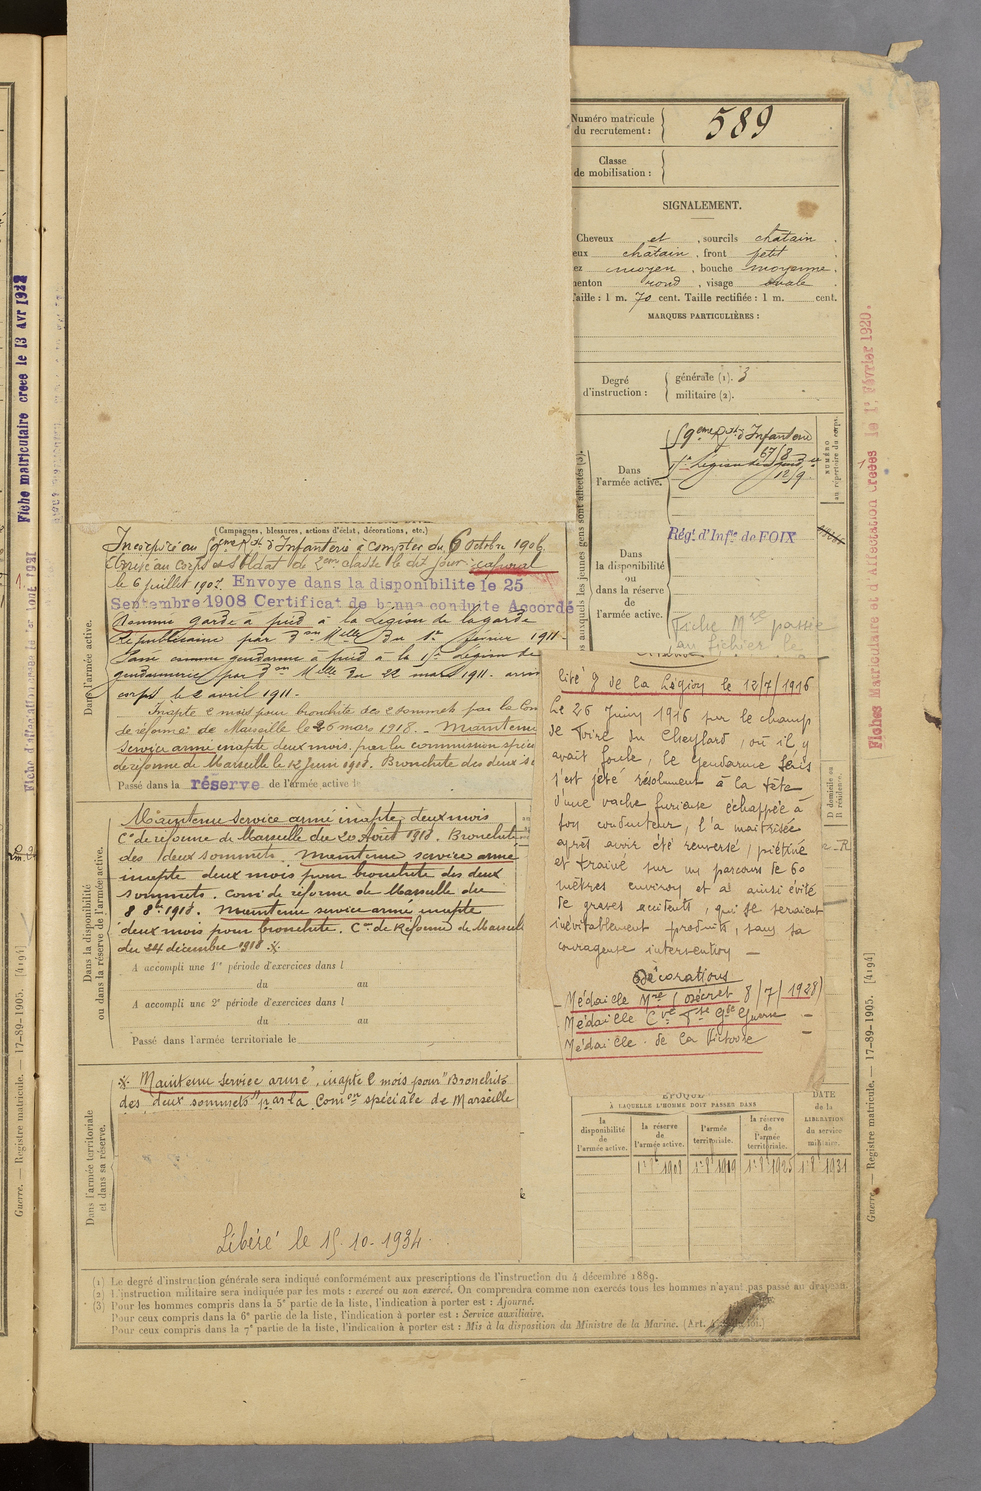 Numéro matricule
du recrutement :
589
Classe
de mobilisation :
SIGNALEMENT.
Cheveux et , sourcils châtain .
eux châtain , front petit
ez moyen , bouche moyenne .
menton rond , visage ovale .
Taille : 1 m. 70 cent. Taille rectifiée : 1 m. cent.
MARQUES PARTICULIÈRES :
Degré
d'instruction :
générale (1). 3
militaire (2).
auxquels les jeunes gens sont affectés (3).
NUMÉRO
au répertoire du corps.
Dans
l'armée active.
59eme Rgt d'Infanterie
15e Légion de
Dans
la disponibilité
ou
dans la réserve
de
l'armée active.
Régt. d'Infie de FOIX
Fiche Mle passée
au fichier le
D domicile ou
R résidence.
(Campagnes, blessures, actions d'éclat, décorations, etc.)
Dans l'armée active.
Incorporé au 59eme Rgt d'Infanterie à compter du 6 Octobre 1906
Arrivé au corps et soldat de 2eme classe le dit jour. caporal
le 6 juillet 1907. Envoyé dans la disponibilité le 25
Septembre 1908 Certificat de bonne conduite Accordé
Nommé garde à pied à la Légion de la garde
Républicaine par Don Mlle du 1er février 1911.
Passé comme gendarme à pied à la 15e Légion de
gendarmerie par Don Mlle du 22 mars 1911. arrivé
corps le 2 avril 1911.
Inapte 2 mois pour bronchite des 2 sommets par la Com
de réforme de Marseille le 26 mars 1918. Maintenu
service armé inapte deux mois. par la commission spéci
de réforme de Marseille le 12 Juin 1918. Bronchite des deux s
Passé dans la réserve de l'armée active le
Dans la disponibilité
ou dans la réserve de l'armée active.
Maintenu service armé inapte deux mois
Con de réforme de Marseille du 20 Août 1918. Bronchite
des deux sommets. Maintenu service armé
inapte deux mois pour bronchite des deux
sommets. Comi de réforme de Marseille du
8 8bre 1918. Maintenu service armé inapte
deux mois pour bronchite. Con de Réforme de Marseill
du 24 décembre 1918. ※
A accompli une 1re période d'exercices dans l
du au
A accompli une 2e période d'exercices dans l
du au
Passé dans l'armée territoriale le
Dans l'armée territoriale
et dans sa réserve.
※ Maintenu service armé, inapte 2 mois pour "Bronchite
des deux sommets" par la Comon spéciale de Marseille
Libéré le 15-10-1934.
lité 9 de la Légion le 12/7/1916
Le 26 Juin 1916 sur le champ
de foire du Cheylard, où il y
avait foule, le gendarme
s'est jeté résolument à la tête
d'une vache furieuse échappée à
son conducteur, l'a maîtrisée
après avoir été renversé, piétiné
et traîné sur un parcours de 60
mètres environ et a ainsi évité
de graves accidents, qui se seraient
inévitablement produits, sans sa
courageuse intervention —
Décorations
- Médaille Mre (Décret 8/7/1928)
- Médaille Cve Fse Gde Guerre -
Médaille de la Victoire -
ÉPOQUE
À LAQUELLE L'HOMME DOIT PASSER DANS
la
disponibilité
de
l'armée active.
la réserve
de
l'armée active.
l'armée
territoriale.
la réserve
de
l'armée
territoriale.
DATE
de la
LIBÉRATION
du service
militaire.
(1) Le degré d'instruction générale sera indiqué conformément aux prescriptions de l'instruction du 4 décembre 1889.
(2) L'instruction militaire sera indiquée par les mots : exercé ou non exercé. On comprendra comme non exercés tous les hommes n'ayant pas passé au drapeau.
(3) Pour les hommes compris dans la 5e partie de la liste, l'indication à porter est : Ajourné.
Pour ceux compris dans la 6e partie de la liste, l'indication à porter est : Service auxiliaire.
Pour ceux compris dans la 7e partie de la liste, l'indication à porter est : Mis à la disposition du Ministre de la Marine. (Art.
Fiches Matriculaire et d'Affectation créées le 1er Février 1920.
Guerre. — Registre matricule. — 17-89-1905. [4194]
Fiche matriculaire créée le 13 Avr 1922
Guerre. — Registre matricule. — 17-89-1905. [4194]